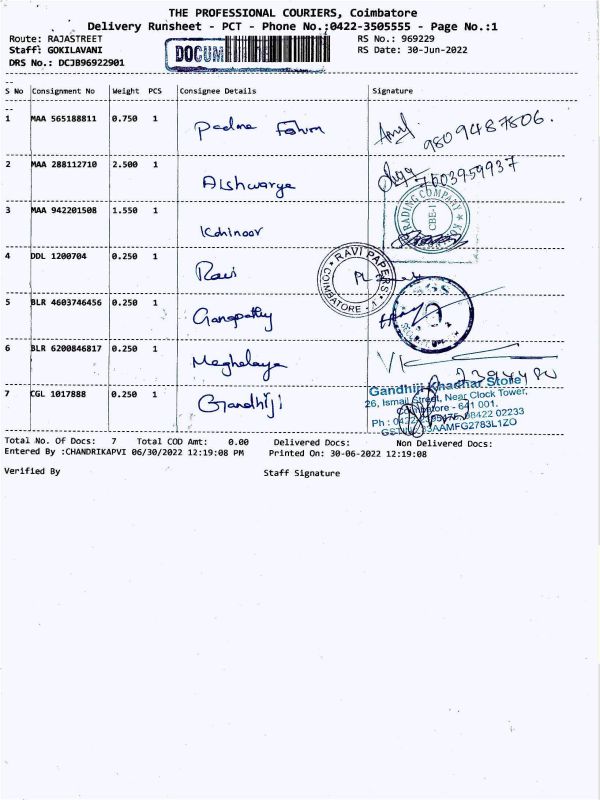 THE PROFESSIONAL COURIERS, Coimbatore
Delivery Runsheet - PCT - Phone No.:0422-3505555 - Page No.:1
Route: RAJASTREET RS No.: 969229
Staff: GOKILAVANI DOCUM RS Date: 30-Jun-2022
DRS No.: DCJB96922901
S No Consignment No Weight PCS Consignee Details Signature
1 MAA 565188811 0.750 1 Padma
9809487506.
2 MAA 288112710 2.500 1 Aishwarya 7603959937
3 MAA 942201508 1.550 1 Kohinoor
TRADING COMPANY CBE-1
4 DDL 1200704 0.250 1 Ravi
RAVI PAPERS COIMBATORE - 1
5 BLR 4603746456 0.250 1 Ganapathy
6 BLR 6200846817 0.250 1 Meghalaya
7 CGL 1017888 0.250 1 Gandhiji
Gandhiji Khadhar Store
26, Ismail Street, Near Clock Tower,
Coimbatore - 641 001.
Total No. Of Docs: 7 Total COD Amt: 0.00 Delivered Docs: Non Delivered Docs:
Entered By :CHANDRIKAPVI 06/30/2022 12:19:08 PM Printed On: 30-06-2022 12:19:08
Verified By Staff Signature